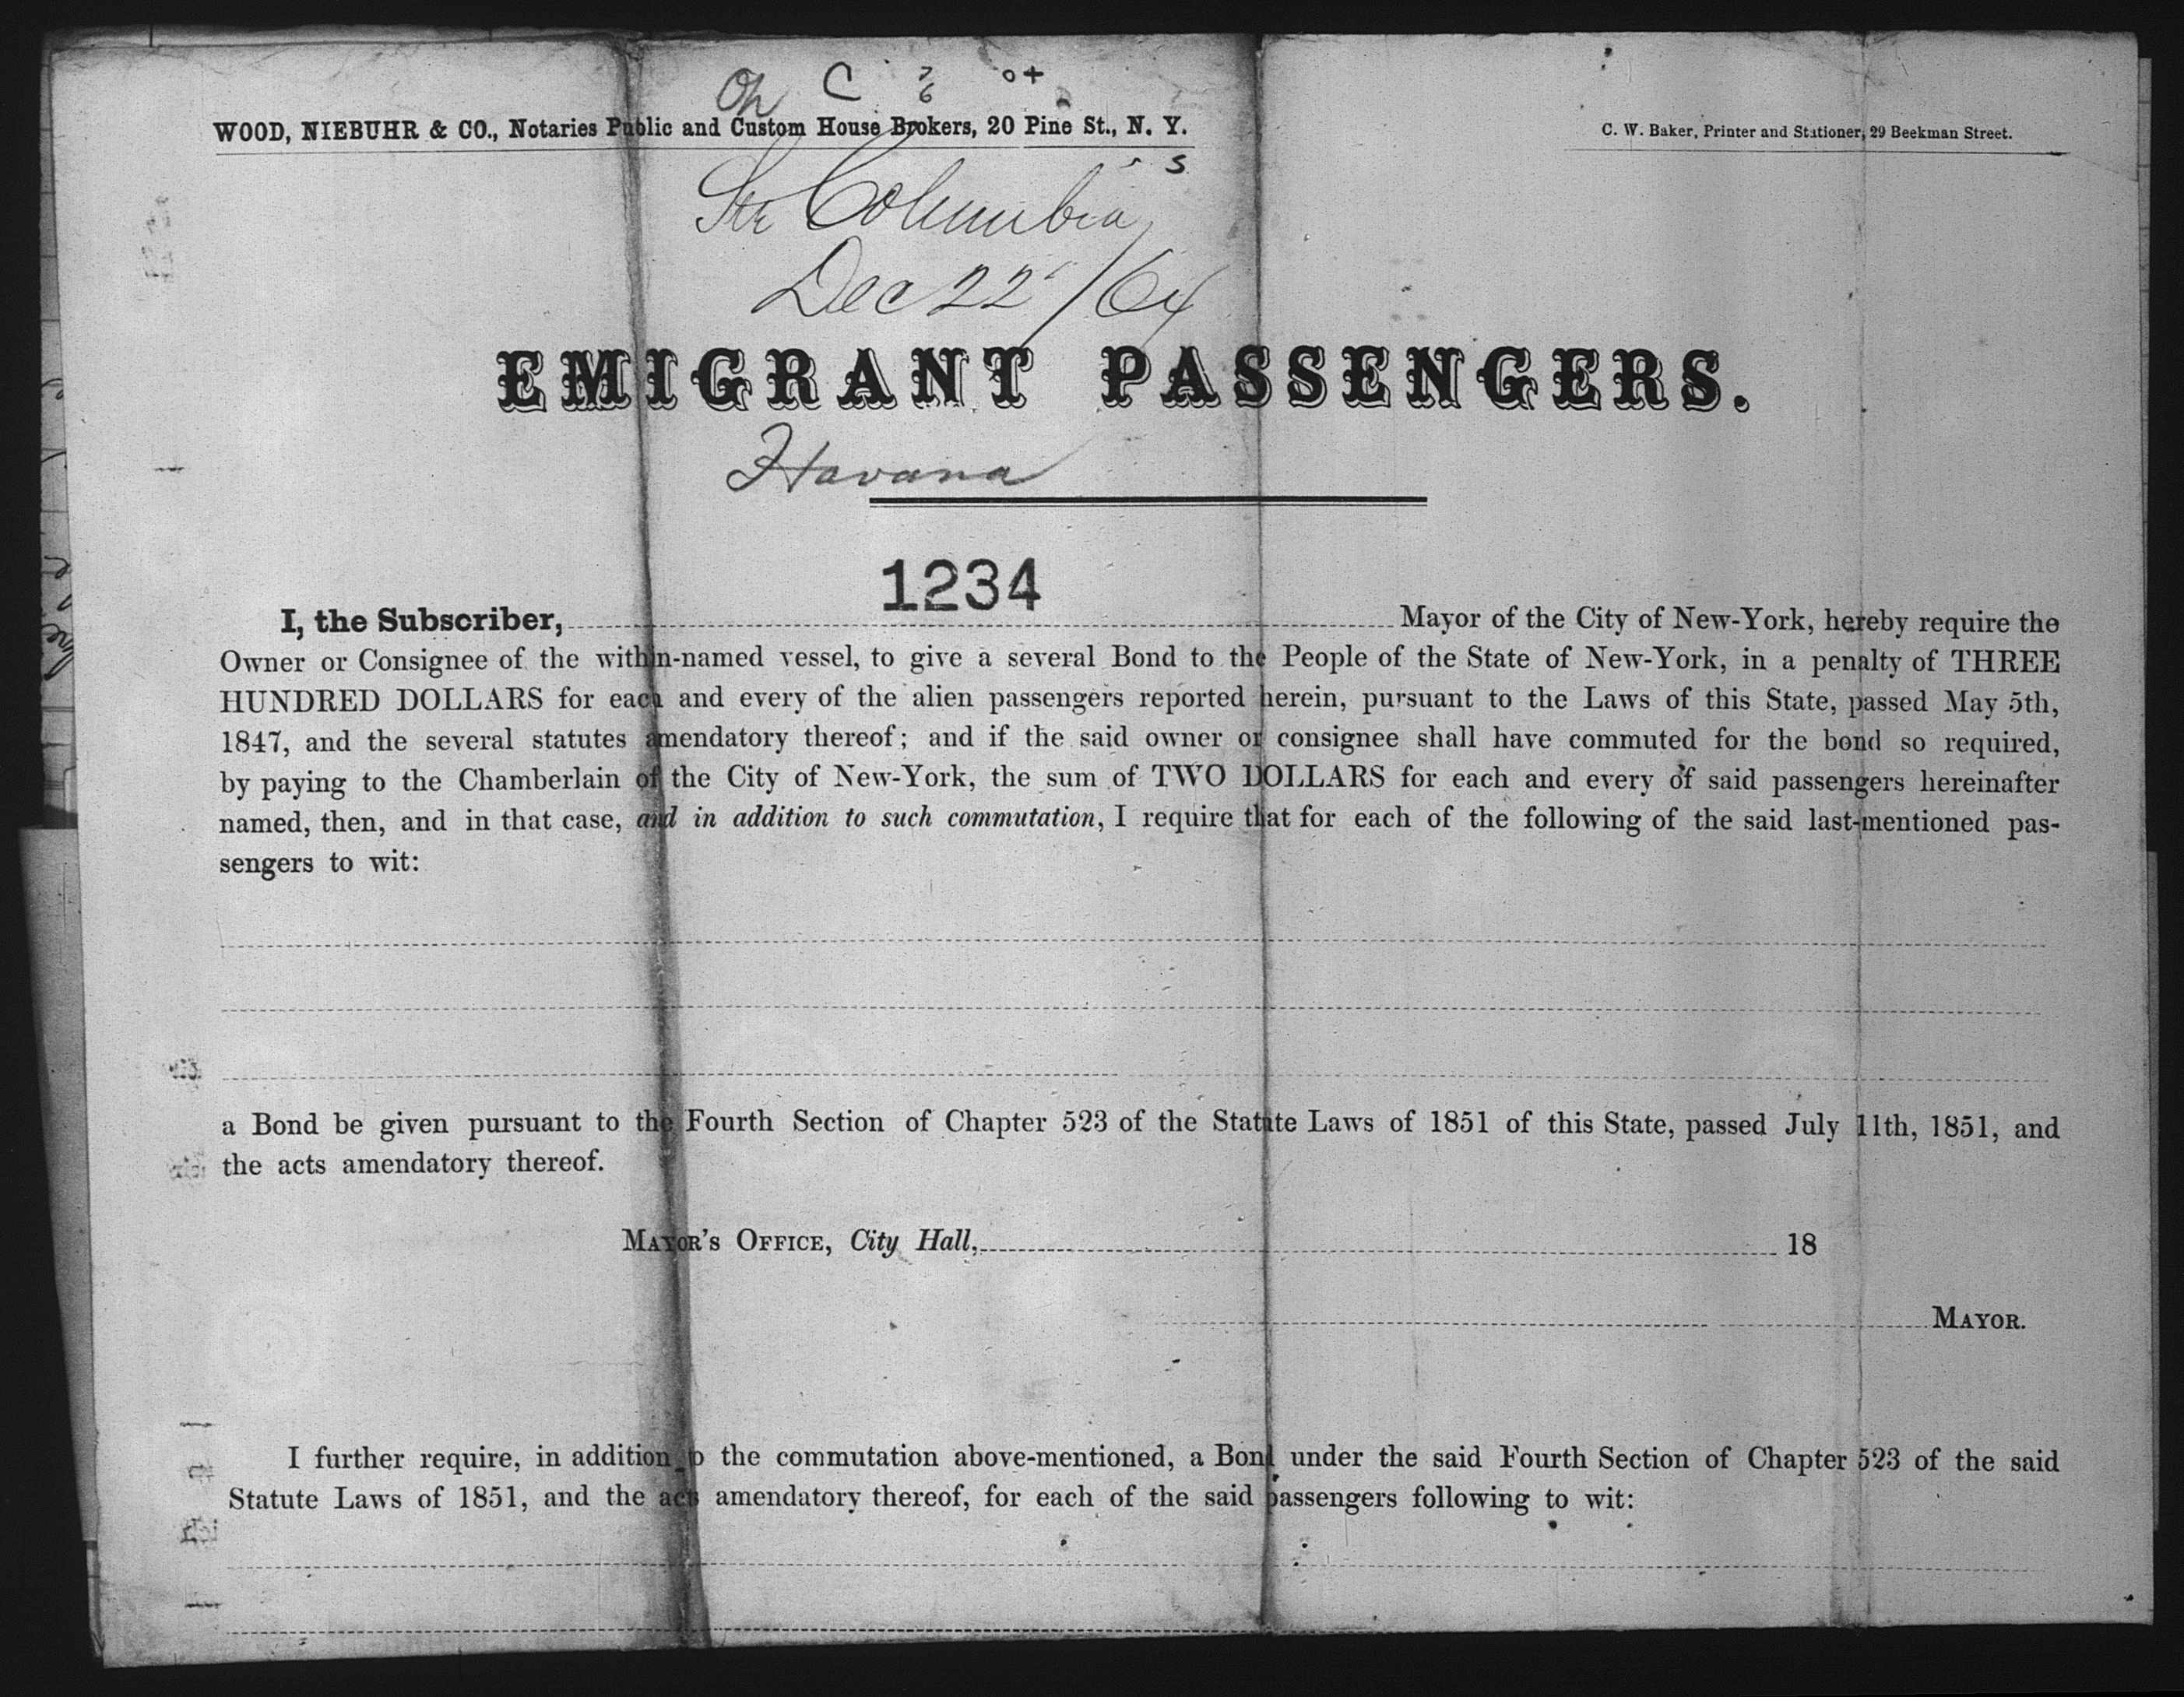 Oh C 7 6 o+
WOOD, NIEBUHR & CO., Notaries Public and Custom House Brokers, 20 Pine St., N. Y.
C. W. Baker, Printer and Stationer, 29 Beekman Street.
s
Str Columbia
Dec 22/64
EMIGRANT PASSENGERS.
Havana
1234
I, the Subscriber, Mayor of the City of New-York, hereby require the
Owner or Consignee of the within-named vessel, to give a several Bond to the People of the State of New-York, in a penalty of THREE
HUNDRED DOLLARS for each and every of the alien passengers reported herein, pursuant to the Laws of this State, passed May 5th,
1847, and the several statutes amendatory thereof; and if the said owner or consignee shall have commuted for the bond so required,
by paying to the Chamberlain of the City of New-York, the sum of TWO DOLLARS for each and every of said passengers hereinafter
named, then, and in that case, and in addition to such commutation, I require that for each of the following of the said last-mentioned pas-
sengers to wit:
a Bond be given pursuant to the Fourth Section of Chapter 523 of the Statute Laws of 1851 of this State, passed July 11th, 1851, and
the acts amendatory thereof.
MAYOR'S OFFICE, City Hall, 18
MAYOR.
I further require, in addition to the commutation above-mentioned, a Bond under the said Fourth Section of Chapter 523 of the said
Statute Laws of 1851, and the acts amendatory thereof, for each of the said passengers following to wit: